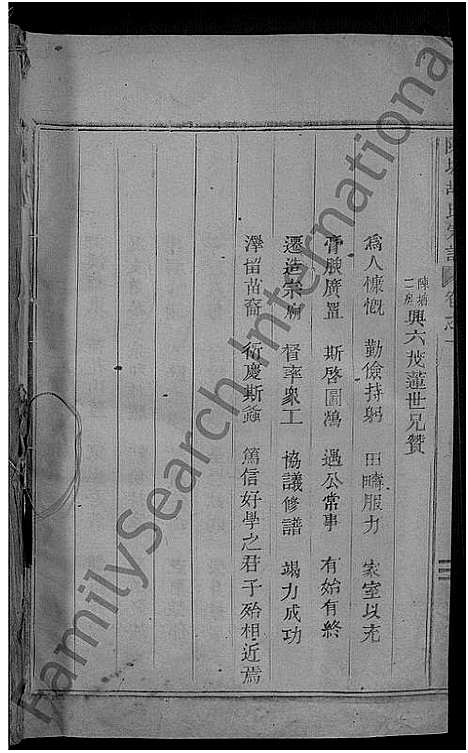 胡氏宗譜 卷之
陳塘二房 興六茂蓮世兄贊
為人慷慨 勤儉持躬 田疇服力 家室以充
膏腴廣置 斯啓圖鴻 遇公常事 有始有終
遷造宗廟 督率衆工 協議修譜 竭力成功
澤留苗裔 衍慶斯螽 篤信好學之君子殆相近焉
FamilySearch International